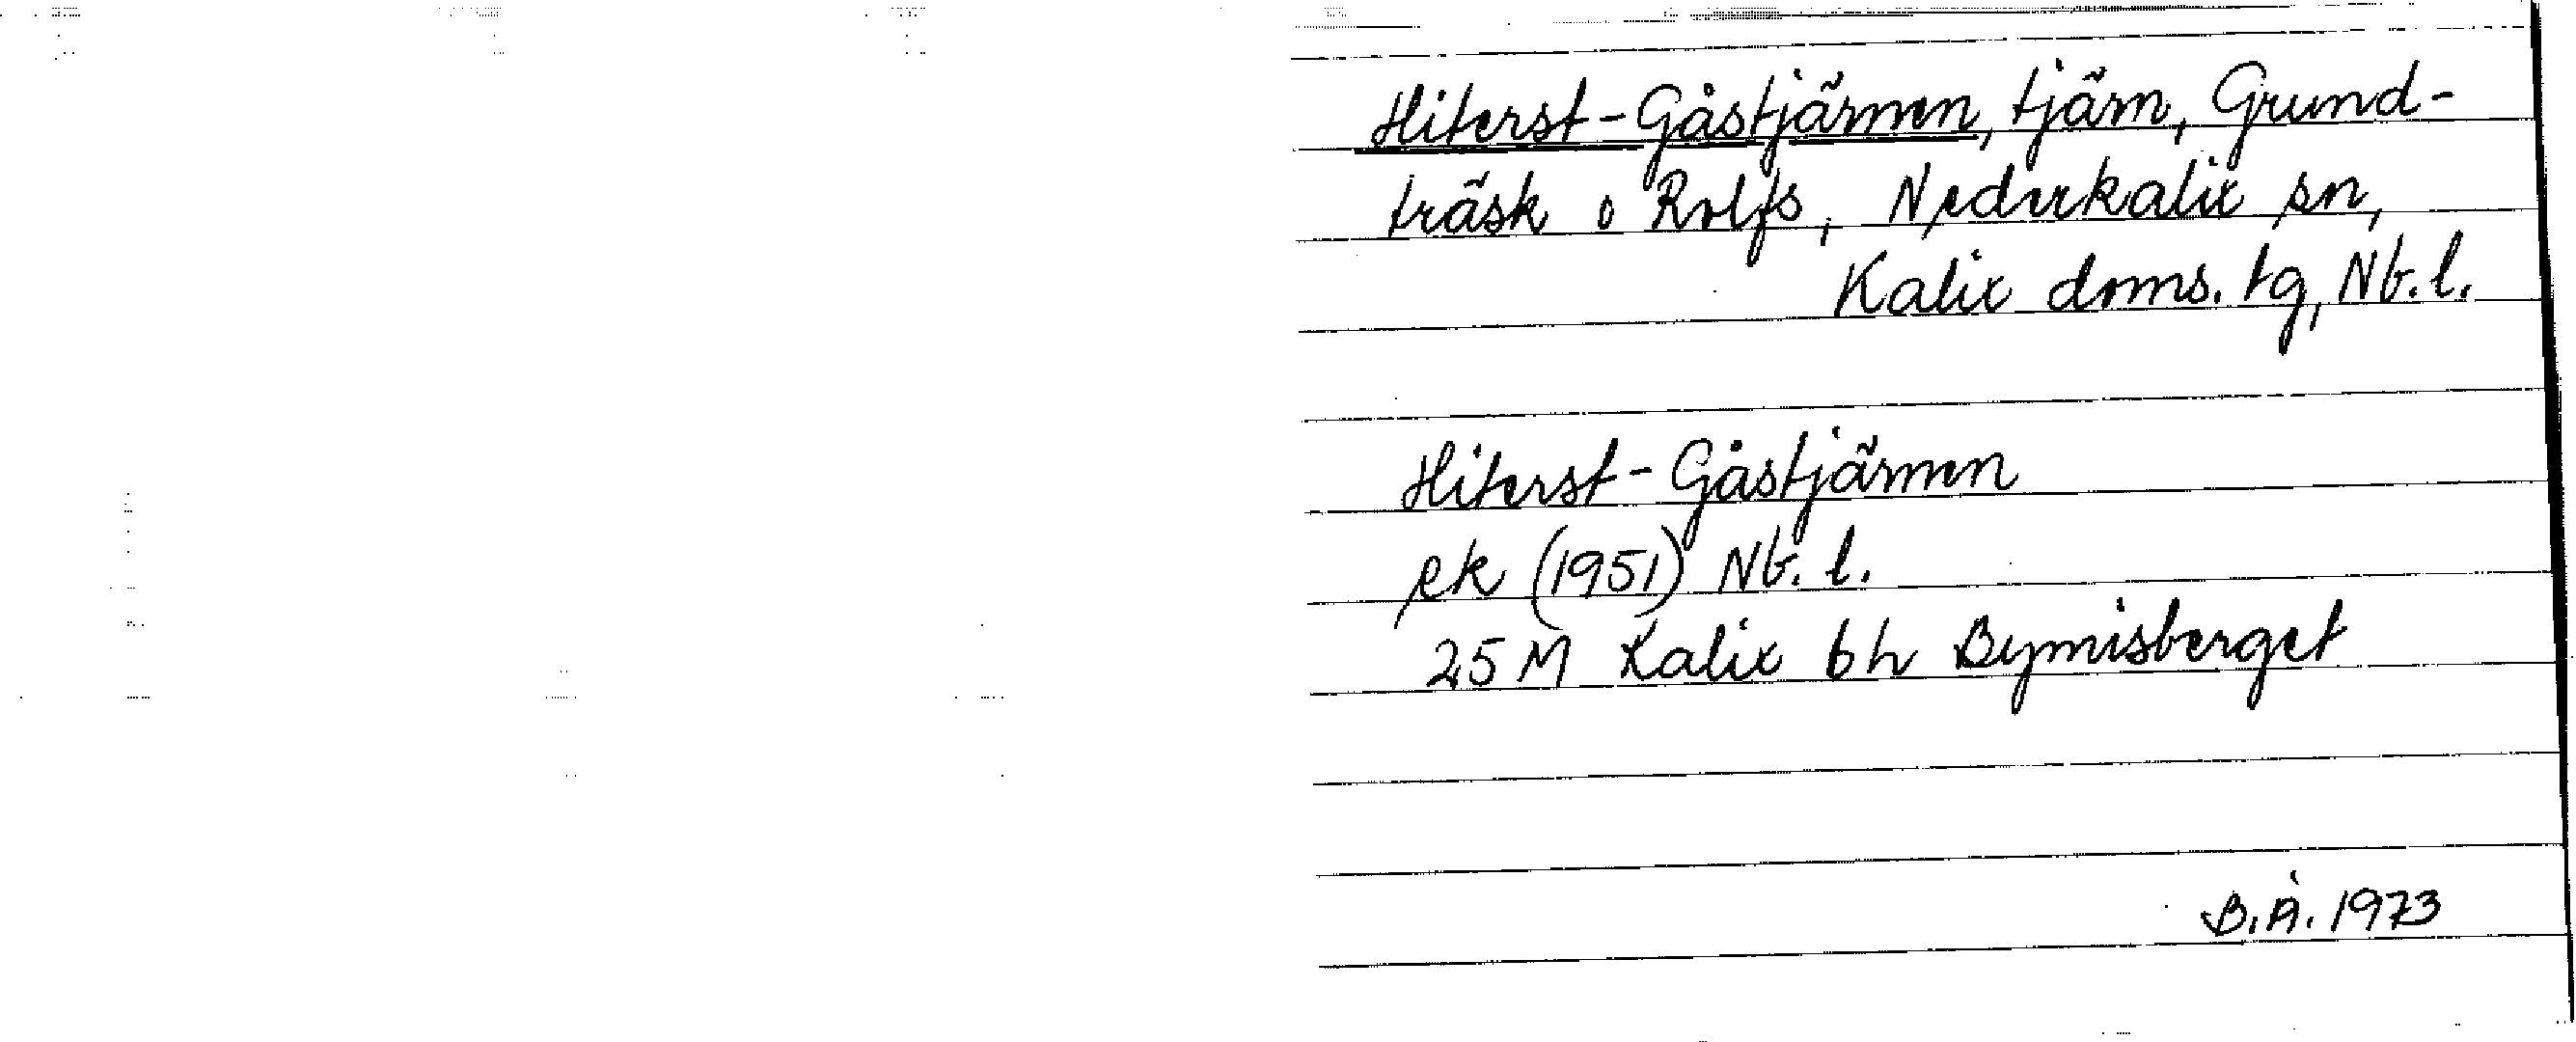 Hiterst-Gåstjärnen, tjärn, Grund-
träsk o Rolfs, Nederkalix sn,
Kalix doms. tg, Nb. l.
Hiterst-Gåstjärnen
ek (1951) Nb. l.
25 M Kalix 6h Bymisberget
B.Å. 1973